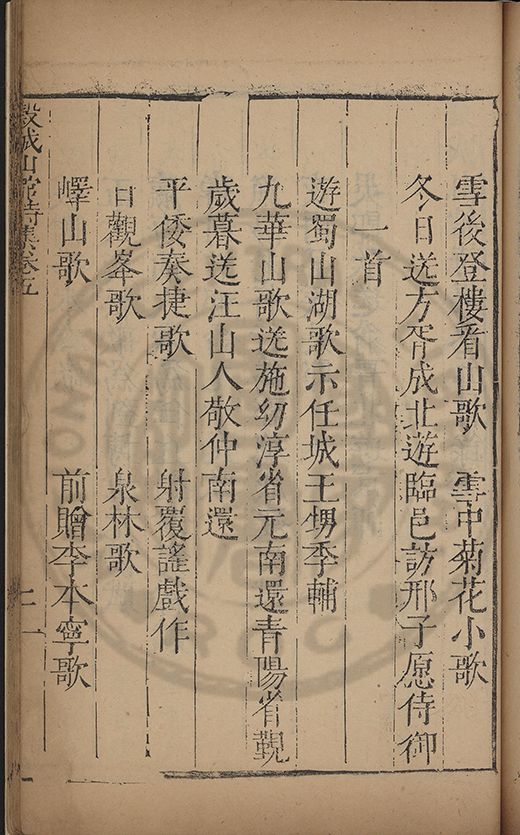 雪後登樓看山歌　雪中菊花小歌
冬日送方胥成北遊臨邑訪邢子愿侍御
一首
遊蜀山湖歌示任城王甥季輔
九華山歌送施幼淳省元南還青陽省覲
歲暮送汪山人敬仲南還
平倭奏捷歌　射覆謠戲作
日觀峯歌　泉林歌
嶧山歌　前贈李本寧歌
穀城山館詩集卷五